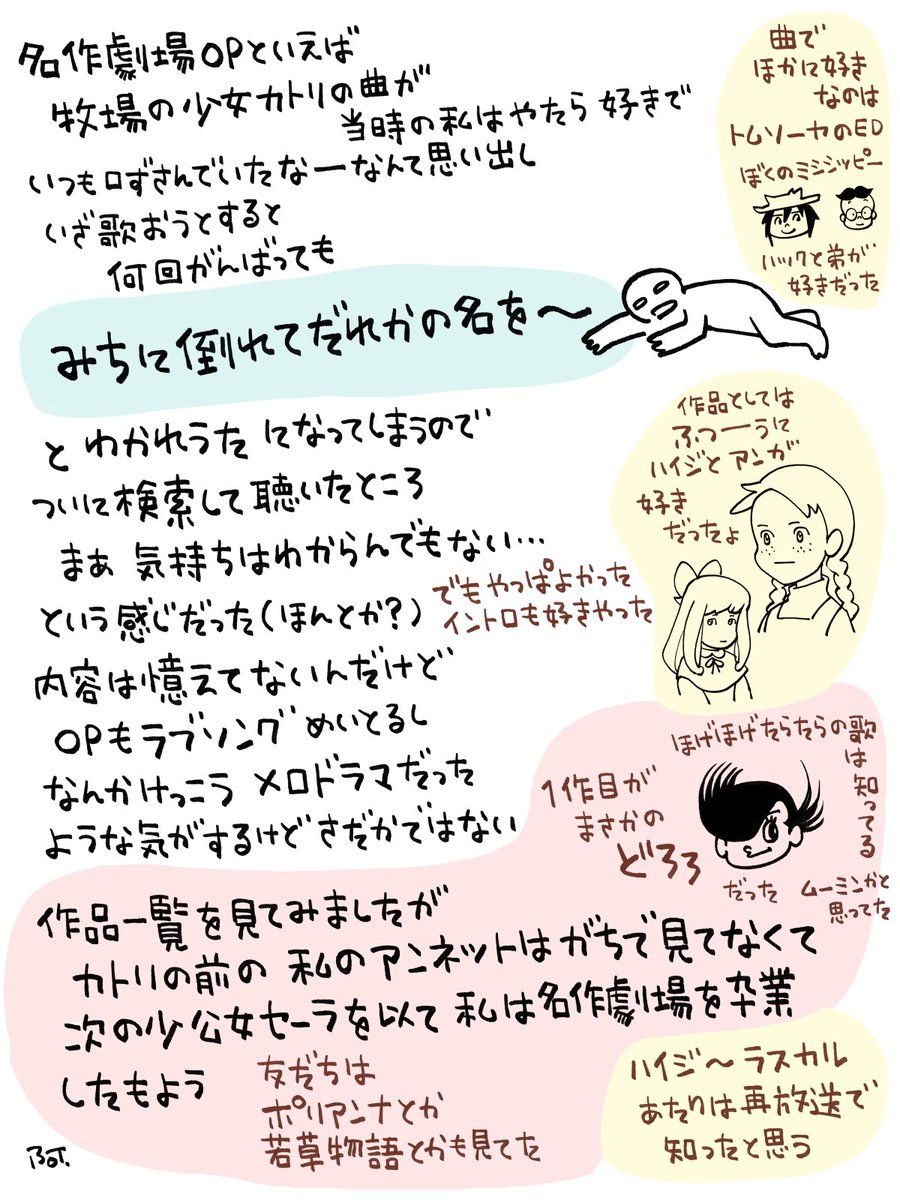 名作劇場OPといえば
牧場の少女カトリの曲が
当時の私はやたら好きで
いつも口ずさんでいたなーなんて思い出し
いざ歌おうとすると
何回がんばっても
みちに倒れてだれかの名を〜
とわかれうたになってしまうので
ついに検索して聴いたところ
まぁ気持ちはわからんでもない…
という感じだった(ほんとか?)
でもやっぱよかった
イントロも好きやった
内容は憶えてないんだけど
OPもラブソングめいとるし
なんかけっこうメロドラマだった
ような気がするけどさだかではない
曲で
ほかに好き
なのは
トムソーヤのED
ぼくのミシシッピー
ハックと弟が
好きだった
作品としては
ふつーうに
ハイジとアンが
好き
だったよ
1作目が
まさかの
どろろ
だった
ほげほげたらたらの歌
は知ってる
ムーミンかと
思ってた
作品一覧を見てみましたが
カトリの前の私のアンネットはがちで見てなくて
次の少公女セーラを以て私は名作劇場を卒業
したもよう
友だちは
ポリアンナとか
若草物語とかも見てた
ハイジ〜ラスカル
あたりは再放送で
知ったと思う
BOT.